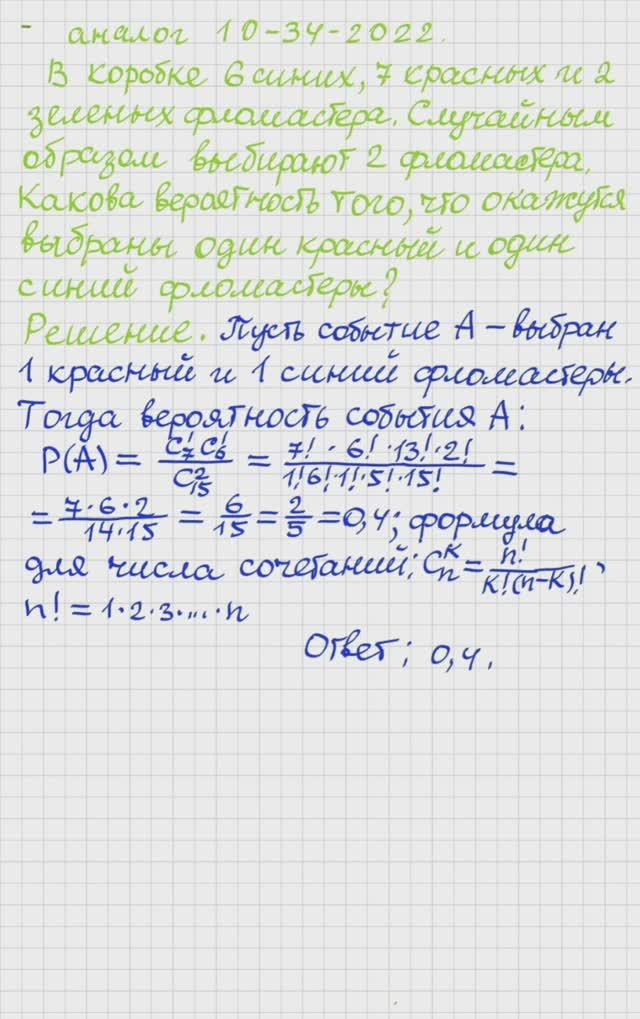 - аналог 10-34-2022.
В коробке 6 синих, 7 красных и 2
зеленых фломастера. Случайным
образом выбирают 2 фломастера.
Какова вероятность того, что окажутся
выбраны один красный и один
синий фломастеры?
Решение. Пусть событие А – выбран
1 красный и 1 синий фломастеры.
Тогда вероятность события А:
P(A) = \frac{C_7^1 C_6^1}{C_{15}^2} = \frac{7! \cdot 6! \cdot 13! \cdot 2!}{1! 6! \cdot 1! \cdot 5! \cdot 15!} =
= \frac{7 \cdot 6 \cdot 2}{14 \cdot 15} = \frac{6}{15} = \frac{2}{5} = 0,4; формула
для числа сочетаний: C_n^k = \frac{n!}{k!(n-k)!},
n! = 1 \cdot 2 \cdot 3 \cdot ... \cdot n
Ответ: 0,4.